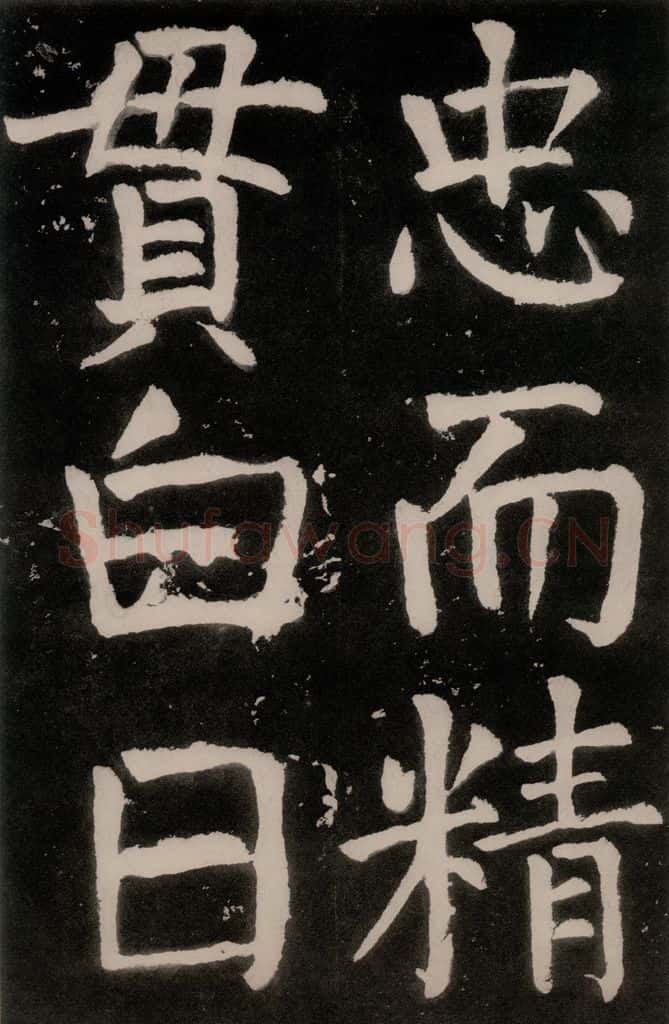 忠而精
貫白日
Shufawang.CN